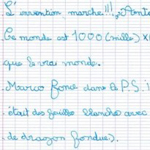 L'invention marche!!!,
Ce monde est 1000 (mille) x
que le vrai monde.
Marco Bona dans le P.S. i
était des feuilles blanches avec
de dragon fendue).